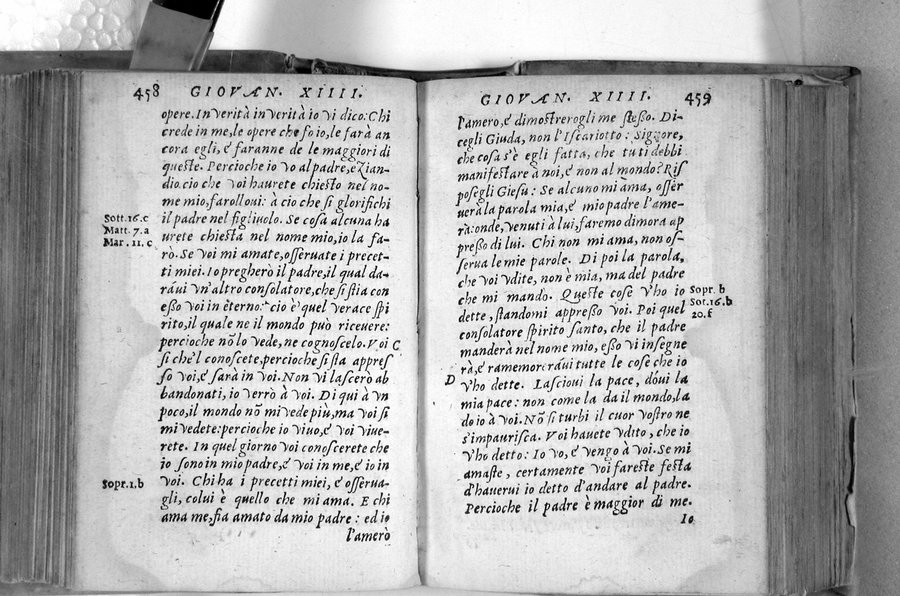 458 GIOVAN. XIIII.
opere. In verità in verità io vi dico: Chi
crede in me, le opere che fo io, le farà an
cora egli, e faranne de le maggiori di
queste. Percioche io vo al padre, eZian-
dio. cio che voi haurete chiesto nel no-
me mio, farolloui: à cio che si glorifichi
il padre nel figliuolo. Se cosa alcuna ha
Sott. 16. c
Matt. 7. a
Mar. 11. c
urete chiesta nel nome mio, io la fa-
rò. Se voi mi amate, osseruate i precet-
ti miei. Io pregherò il padre, il qual da-
ráui vn'altro consolatore, che si stia con
esso voi in eterno: cio è quel verace spi
rito, il quale ne il mondo può riceuere:
percioche nõ lo vede, ne cognoscelo. Voi C
sì che'l conoscete, percioche si sta appres
so voi, e sarà in voi. Non vi lascerò ab
bandonati, io verrò à voi. Di qui à vn
poco, il mondo nõ mi vede più, ma voi si
mi vedete: percioche io viuo, e voi viue-
rete. In quel giorno voi conoscerete che
io sono in mio padre, e voi in me, e io in
Sopr. 1. b
voi. Chi ha i precetti miei, e osserua-
gli, colui è quello che mi ama. E chi
ama me, fia amato da mio padre: ed io
l'amerò
GIOVAN. XIIII. 459
l'amero, e dimostrerogli me stesso. Di-
cegli Giuda, non l'Iscariotto: Signore,
che cosa s'è egli fatta, che tu ti debbi
manifestare à noi, e non al mondo? Ris
posegli Giesu: Se alcuno mi ama, osser
uerà la parola mia, e mio padre l'ame-
rà: onde, venuti à lui, faremo dimora ap
presso di lui. Chi non mi ama, non os-
serua le mie parole. Di poi la parola,
che voi vdite, non è mia, ma del padre
che mi mandò. Queste cose v'ho io
Sopr. b
Sot. 16. b
20. f
dette, standomi appresso voi. Poi quel
consolatore spirito santo, che il padre
manderà nel nome mio, esso vi insegne
rà, e ramemoreráui tutte le cose che io
D
v'ho dette. Lascioui la pace, dóui la
mia pace: non come la da il mondo, la
do io à voi. Nõ si turbi il cuor vostro ne
s'impaurisca. Voi hauete vdito, che io
v'ho detto: Io vo, e vengo à voi. Se mi
amaste, certamente voi fareste festa
d'hauerui io detto d'andare al padre.
Percioche il padre è maggior di me.
Io